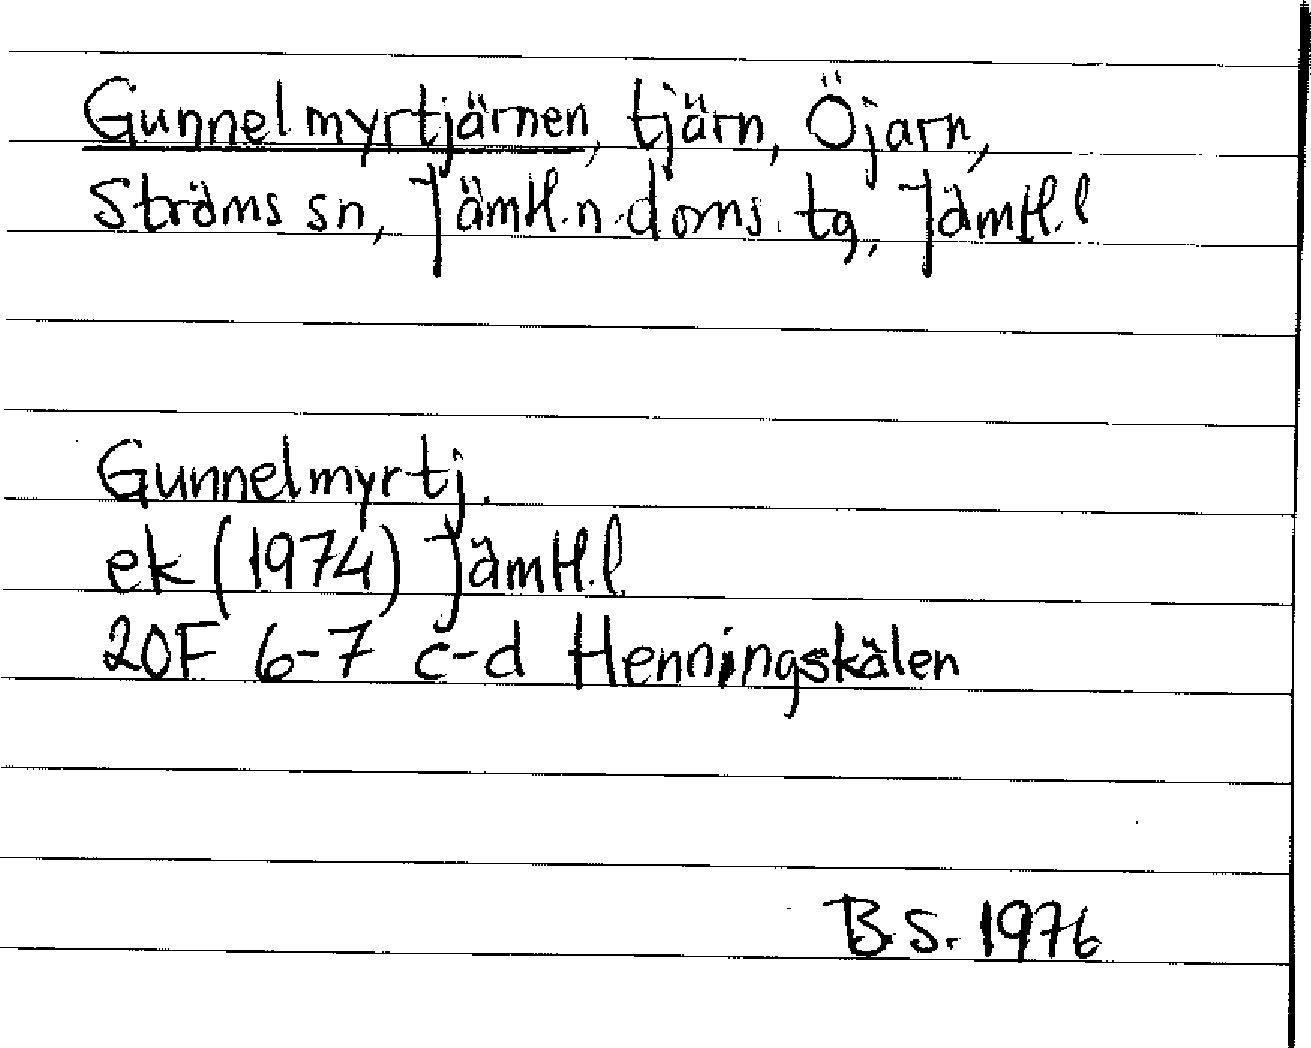 Gunnelmyrtjärnen, tjärn, Öjarn,
Ströms sn, Jämtl.n.doms.tg, Jämtl.l
Gunnelmyrtj.
ek (1974) Jämtl.l
20F 6-7 c-d Henningskålen
B.S. 1976